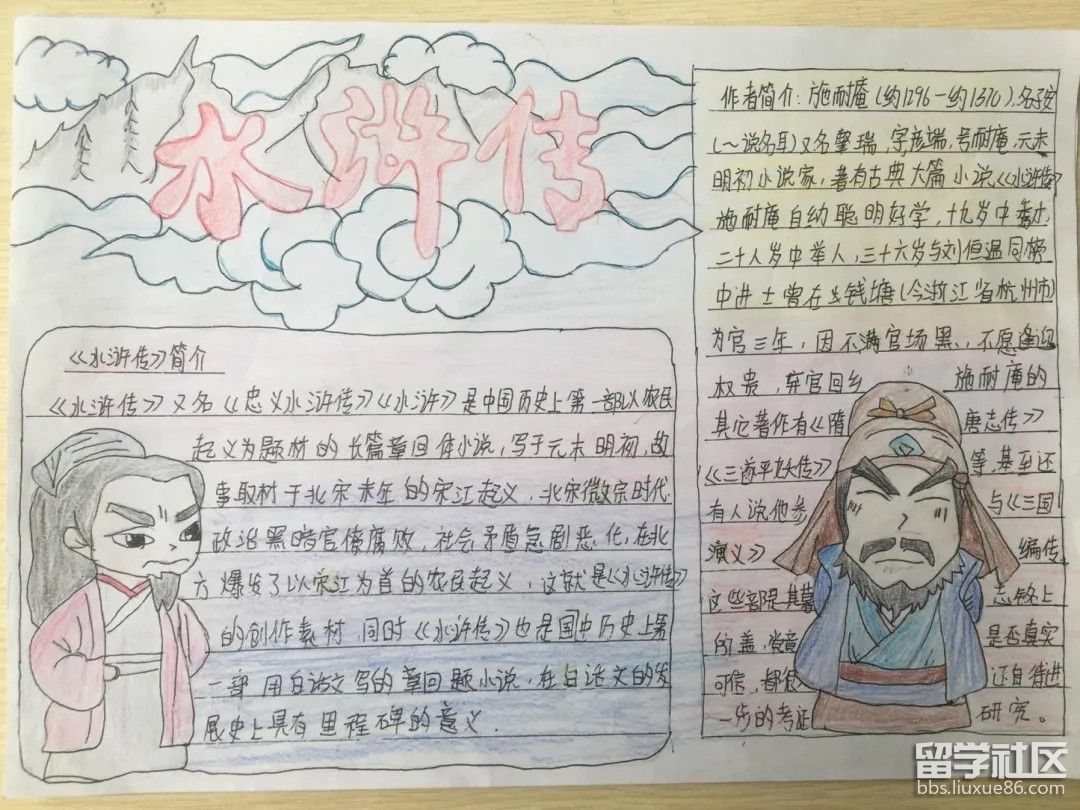 水浒传
《水浒传》简介
《水浒传》又名《忠义水浒传》《水浒》是中国历史上第一部以农民
起义为题材的长篇章回体小说,写于元末明初,故
事取材于北宋末年的宋江起义,北宋微宗时代
政治黑暗官僚腐败,社会矛盾急剧恶化,在北
方爆发了以宋江为首的农民起义,这就是《水浒传》
的创作素材 同时《水浒传》也是国中历史上第
一部用白话文写的章回题小说,在白话文的发
展史上具有里程碑的意义.
作者简介:施耐庵(约1296-约1370).名
(一说名耳)又名肇瑞,字彦端,号耐庵,元末
明初小说家,著有古典大篇小说《水浒传》
施耐庵自幼聪明好学,十九岁中秀才
二十八岁中举人,三十六岁与刘伯温同榜
中进士曾在 钱塘(今浙江省杭州市)
为官三年,因不满官场黑,不愿逢迎
权贵,弃官回乡 施耐庵的
其它著作有《隋 唐志传》
《三遂平妖传》 等,甚至还
有人说他参 与《三国
演义》 编传
这些部是其墓 志铭上
的盖,究竟 是否真实
可信,都 还自待进
一步的考证 研究。
留学社区
bbs.liuxue86.com